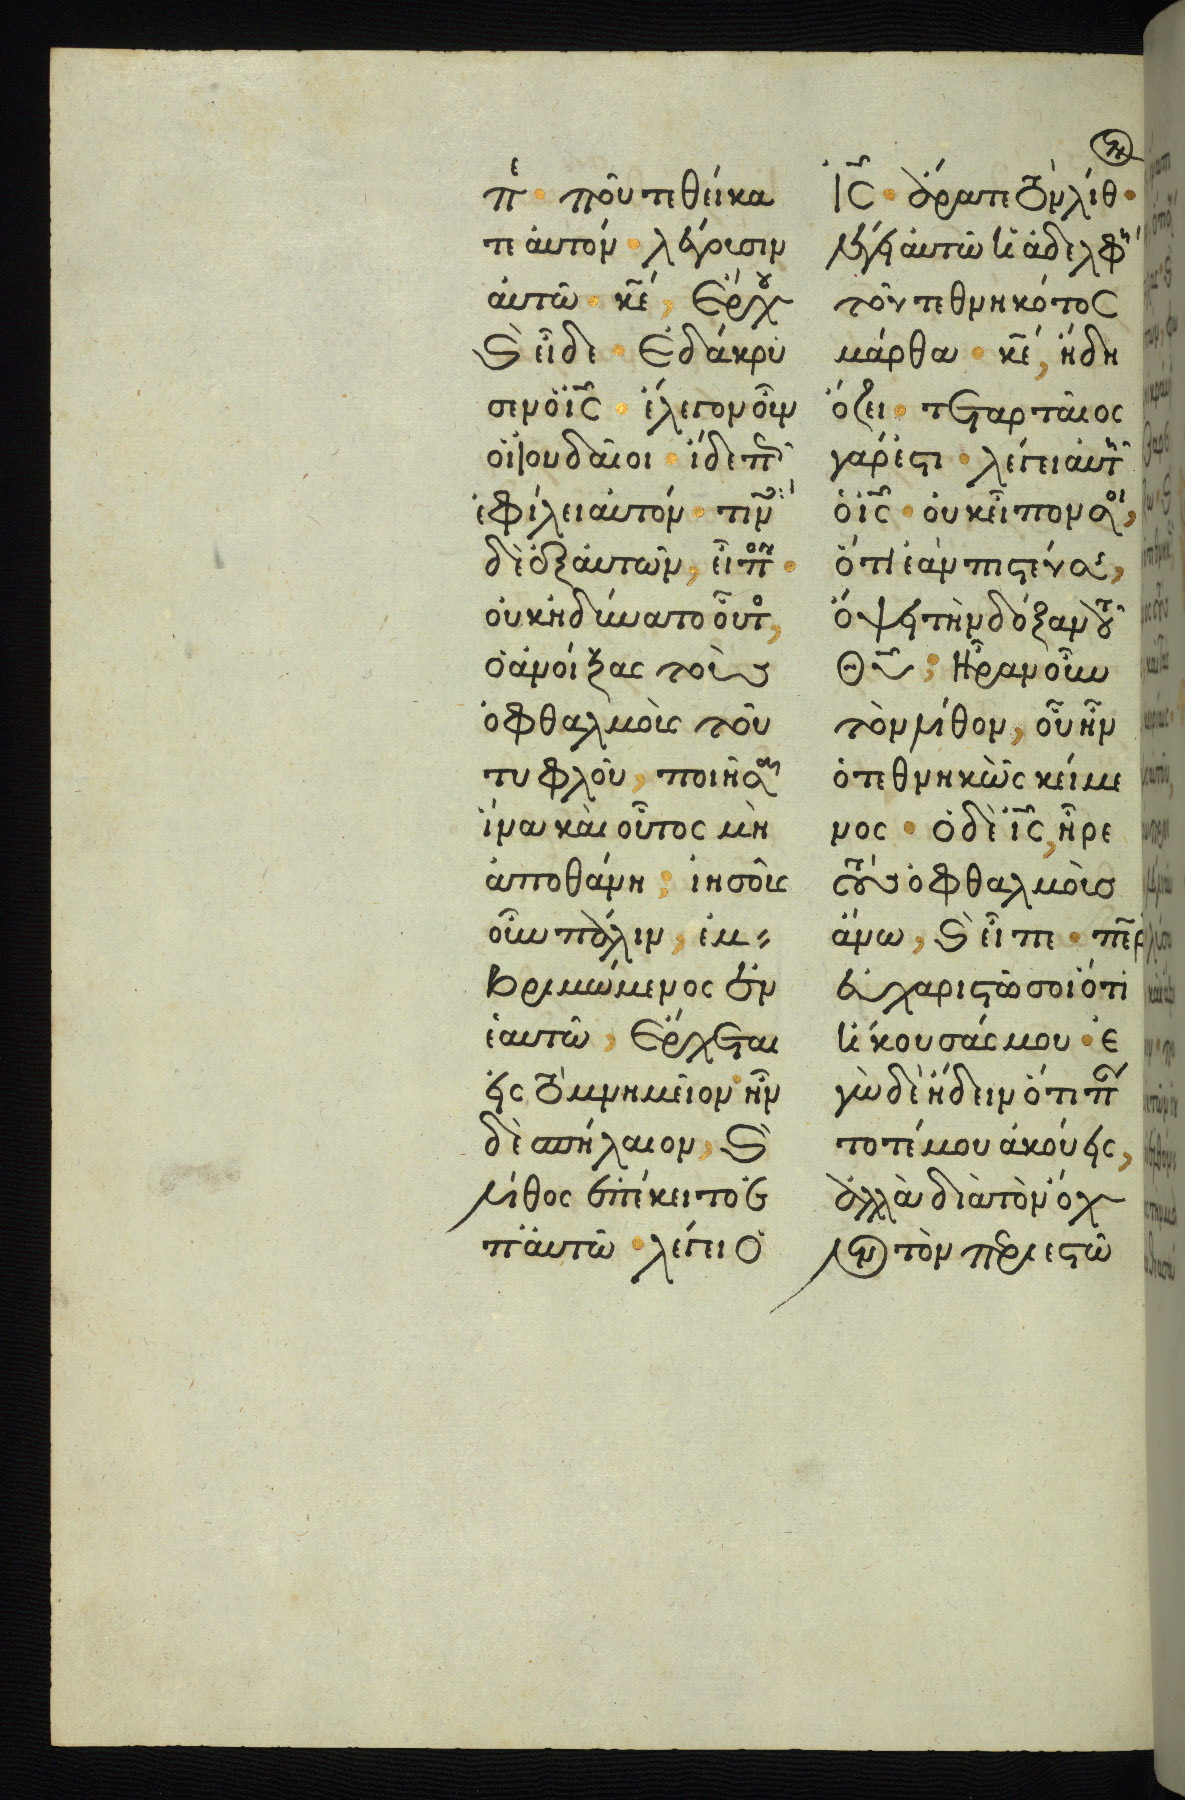 πε · ποῦ τεθείκα
τε αὐτόν · λέγουσιν
αὐτῶ · κε, ἔρχου
καὶ εἶδε · ἐδάκρυ
σεν ὁ ις · ἔλεγον οὖν
οἱ ἰουδαῖοι · ἴδε πῶς
ἐφίλει αὐτόν · τινὲς
δὲ ἐξ αὐτῶν, εἶπον ·
οὐκ ἠδύνατο οὗτος,
ὁ ἀνοίξας τοὺς
ὀφθαλμοὺς τοῦ
τυφλοῦ, ποιῆσαι
ἵνα καὶ οὗτος μὴ
ἀποθάνη; ἰησοῦς
οὖν πάλιν, ἐμ-
βριμώμενος ἐν
ἑαυτῶ, ἔρχεται
εἰς τὸ μνημεῖον · ἦν
δὲ σπήλαιον, καὶ
λίθος ἐπέκειτο ἐ
π' αὐτῶ · λέγει ὁ
ις · ἄρατε τὸν λίθον ·
λέγει αὐτῶ ἡ ἀδελφὴ
τοῦ τεθνηκότος
μάρθα · κε, ἤδη
ὄζει · τεταρταῖος
γάρ ἐστι · λέγει αὐτῆ
ὁ ις · οὐκ εἶπόν σοι,
ὅτι ἐὰν πιστεύσης,
ὄψει τὴν δόξαν τοῦ
θυ; ἦραν οὖν
τὸν λίθον, οὗ ἦν
ὁ τεθνηκὼς κείμε
νος · ὁ δὲ ις, ἦρε
τοὺς ὀφθαλμοὺς
ἄνω, καὶ εἶπε · περ
εὐχαριστῶ σοι ὅτι
ἤκουσάς μου · ἐ
γὼ δὲ ἤδειν ὅτι πάν
τοτέ μου ἀκούεις,
ἀλλὰ διὰ τὸν ὄχ
λον τὸν περιεστῶ